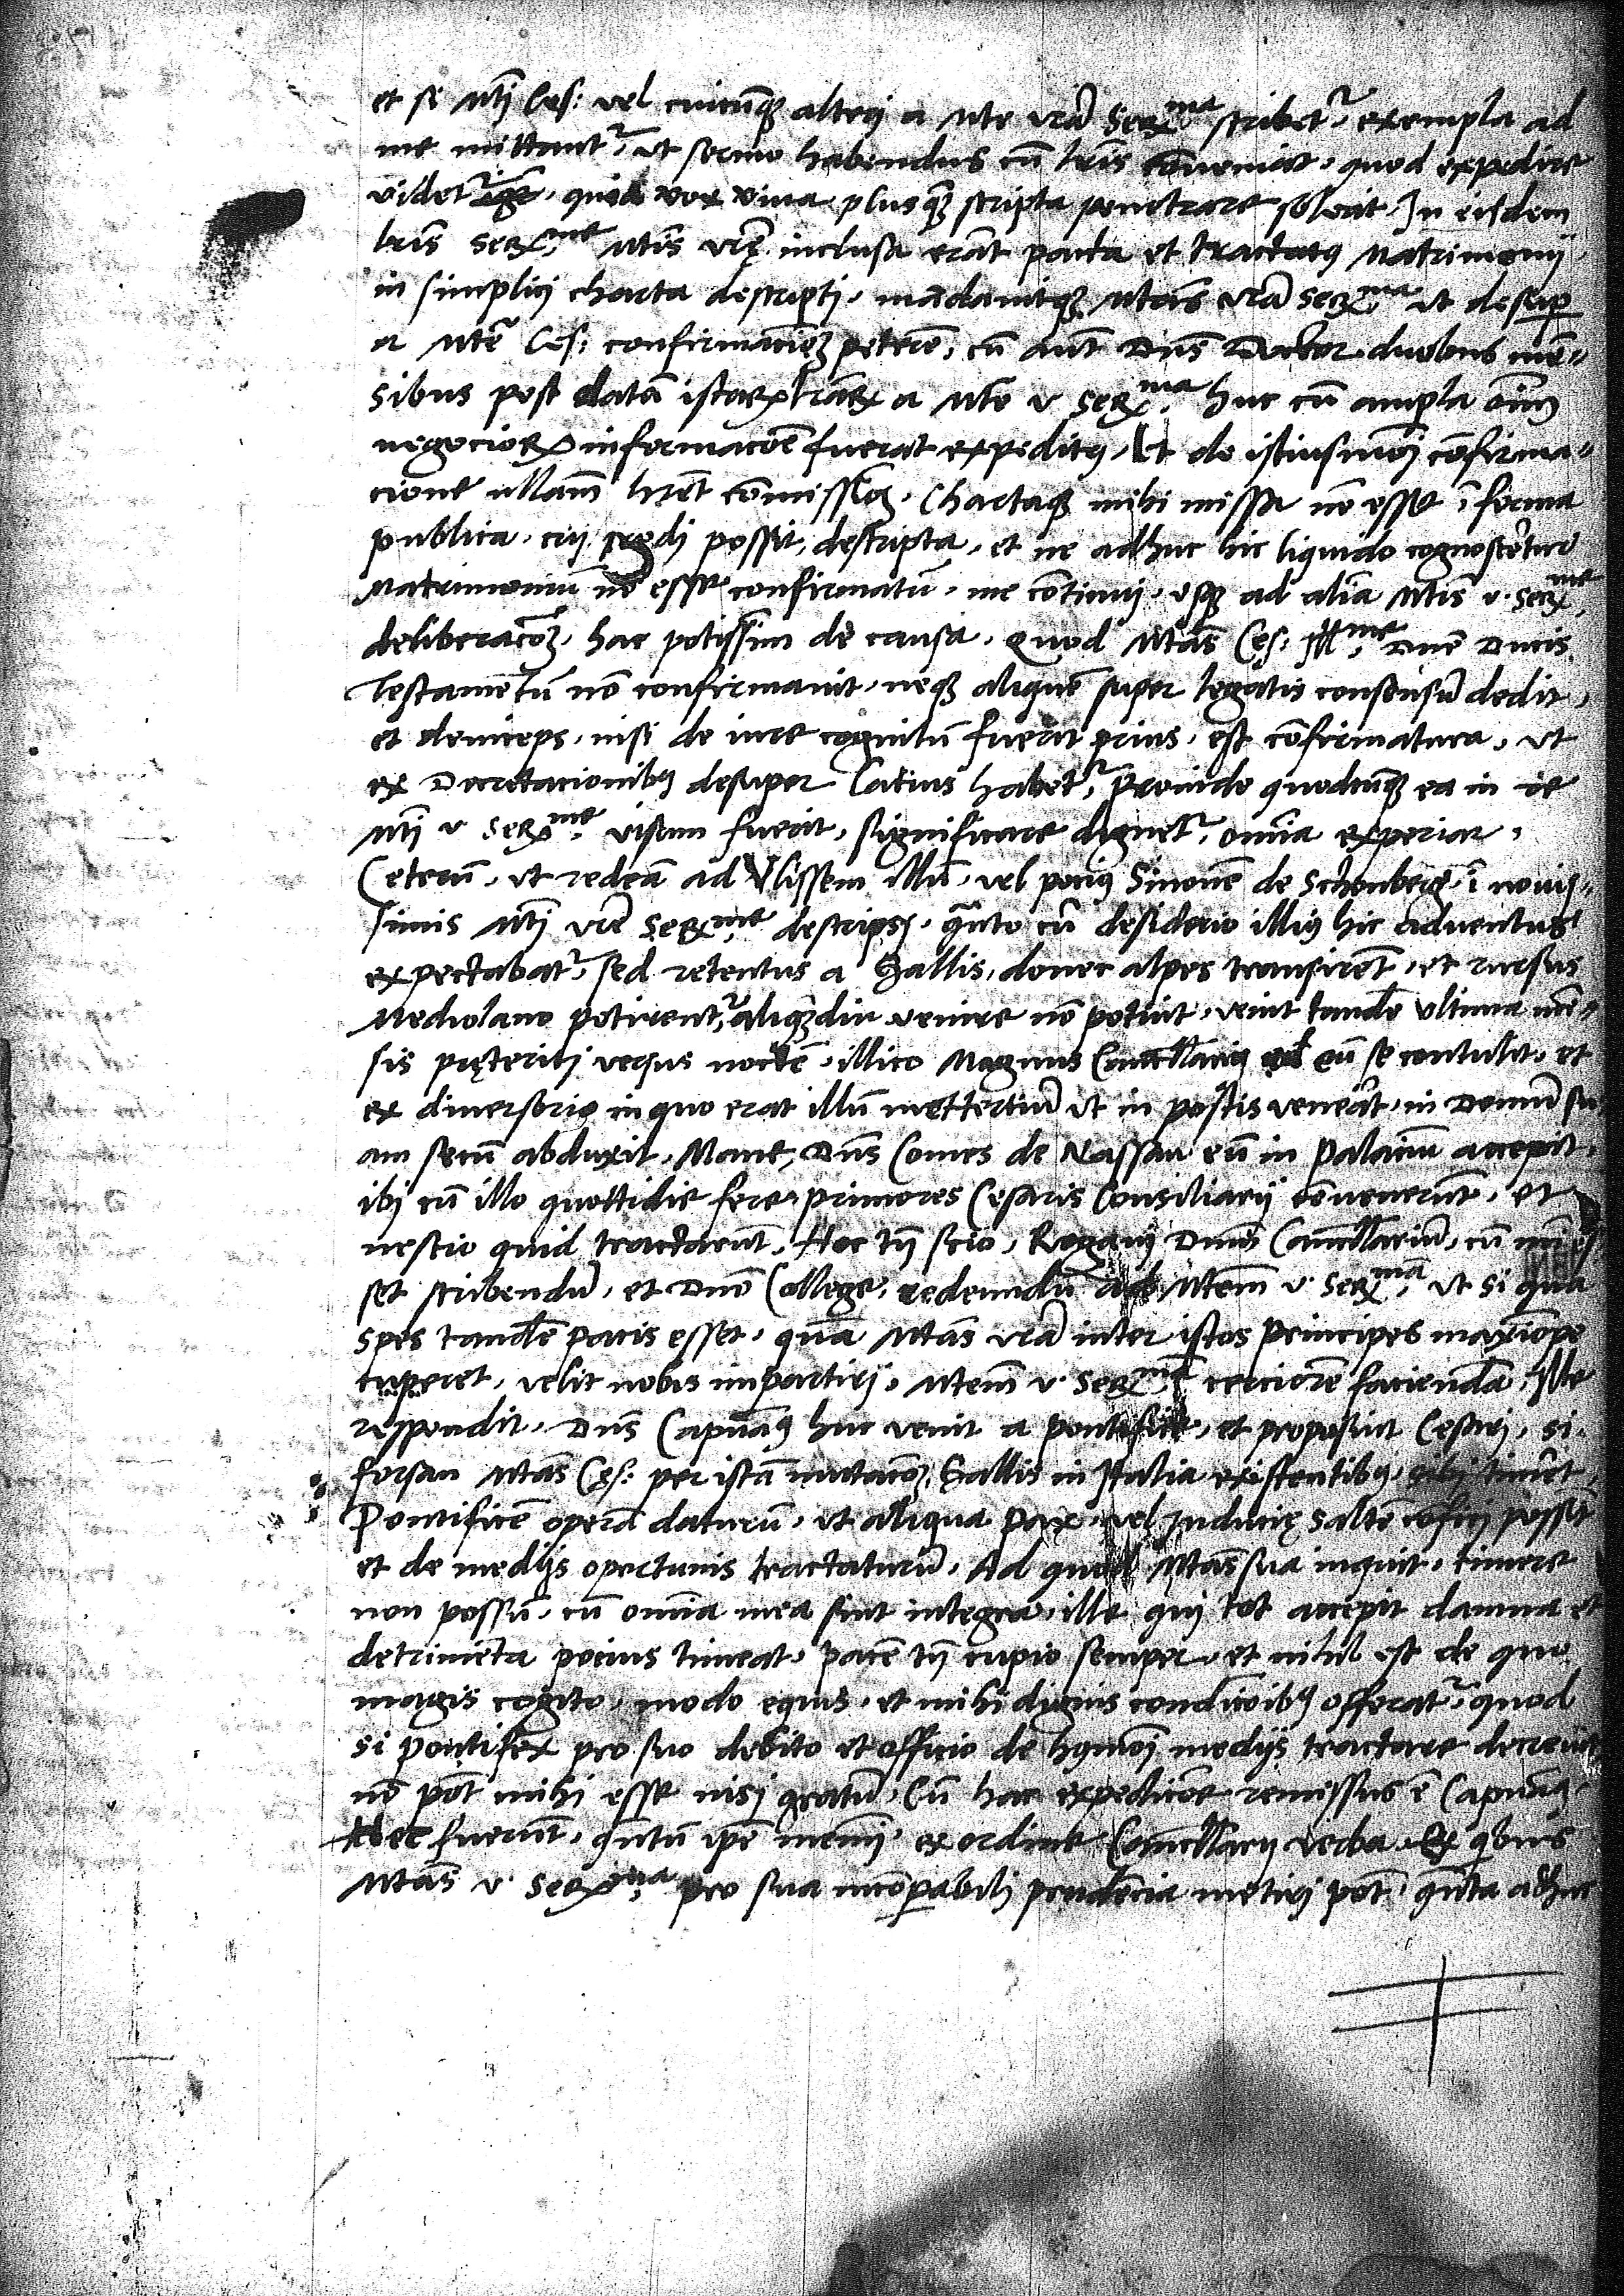 et si Mti Ces: vel cuicunq; alteri a Mte vrã Serma scribet', exempla ad
me mittant', ut sermo habendus cũ lris cõueniat, quod expedire
videt', quia vox viua plusq; scripta penetrare soleat. In eisdem
lris Serme Mtis vrẽ inclusa erãt pacta et tractatus Matrimonij
in simplici charta descripti, mãdauitq; Mtas vrã Serma ut desup
a Mte Ces: confirmacioẽ peterẽ, cũ aut Dns Doctor duobus men=
sibus post datã istarx lrarx a Mte v Serma huc cũ ampla oĩm
negociorx informacõe fuerat expeditus, Et de istiusmõi cõfirma=
cione ullam hret cõmissioẽ, Chartaq; mihi missa nõ esset ĩ forma
publica, cui credi possit, descripta, et ne adhuc hic liquido cognoscẽtur
Matrimoniũ nõ esse confirmatũ, me cõtinui, usq; ad aliã Mtis v. Serme
deliberacõẽ, hac potissim de causa, Quod Mtas Ces: Illme Dne Ducis
Testamẽtũ nõ confirmauit, neq; aliquẽ super legatis consensũ dedit,
et deinceps, nisi de iure cognitũ fuerit prius, est cõfirmatura, ut
ex Decretacionibus desuper latius habet', Proinde quodcũq; ea in re
Mti v Serme visum fuerit, significare dignet', omĩa experiar,
Ceterũ, ut redeã ad Vlissem illũ, vel pocius Sinonẽ de Schonberg, ĩ nouis=
simis Mti vrẽ Serme descripsi, quãto cũ desiderio illius hic aduentus
expectabat', sed retentus a Gallis, donec alpes transirẽt, et rursus
Mediolano potirent', aliq;diu venire nõ potuit, venit tandẽ ultima mẽ=
sis preteriti versus noctẽ, illico Magnus Cancellarius ad eũ se contulit, et
ex diuersorio in quo erat illũ mettertiũ ut in postis venerãt, in Domũ su
am secũ abduxit, Mane, Dns Comes de Nassau eũ in Palaciũ accepit,
ibi cũ illo quottidie fere primores Cesaris Consiliarij cõuenerũt, et
nescio quid tractarũt, Hoc tñ scio, Rogaui Dnm Cancellariũ, cũ mihi es
set scribendũ, et Dno College, redeundũ ad Mtem v. Serma, ut si qua
spes tandẽ pacis esset, quã Mtas vrã inter istos Principes maxiõpe
cuperet, velit nobis impartiri, Mtem v. Serma cerciorẽ faciendã, Ille
respondit, Dns Capuanus huc venit a pontifice, et proposuit Cesari, si
forsan Mtas Ces: per istã mutacõẽ, Gallis in Italia existentibus, sibi timẽt,
Pontificẽ operã daturũ, ut aliqua pax, vel Inducie saltẽ cõfici possẽt
et de medijs oportunis tractaturũ, Ad quod Mtas sua inquit, timere
non possũ, cũ omĩa mea sint integra, ille qui tot accepit damna et
detrimẽta pocius timeat, pacẽ tñ cupio semper, et nihil est de quo
magis cogito, modo equis, et mihi dignis condicõibus offerat', quod
si pontifex pro suo debito et officio de hmõi medijs tractare decreuit
nõ põt mihi esse nisi gratũ, Cũ hac expedicõe remissus ẽ Capuanus,
Hec fuerũt, quãtũ ipẽ memini, ex ordine Cancellarij verba, Ex qbus
Mtas v. Serma pro sua incõparabili prudẽcia metiri põt, quãta adhuc